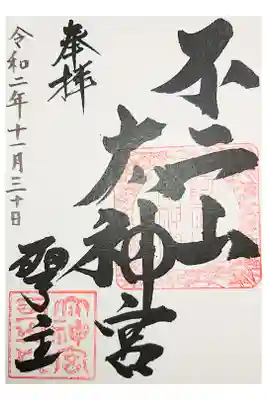 不二山
大神宮
奉拝
聖主
令和二年十一月三十日